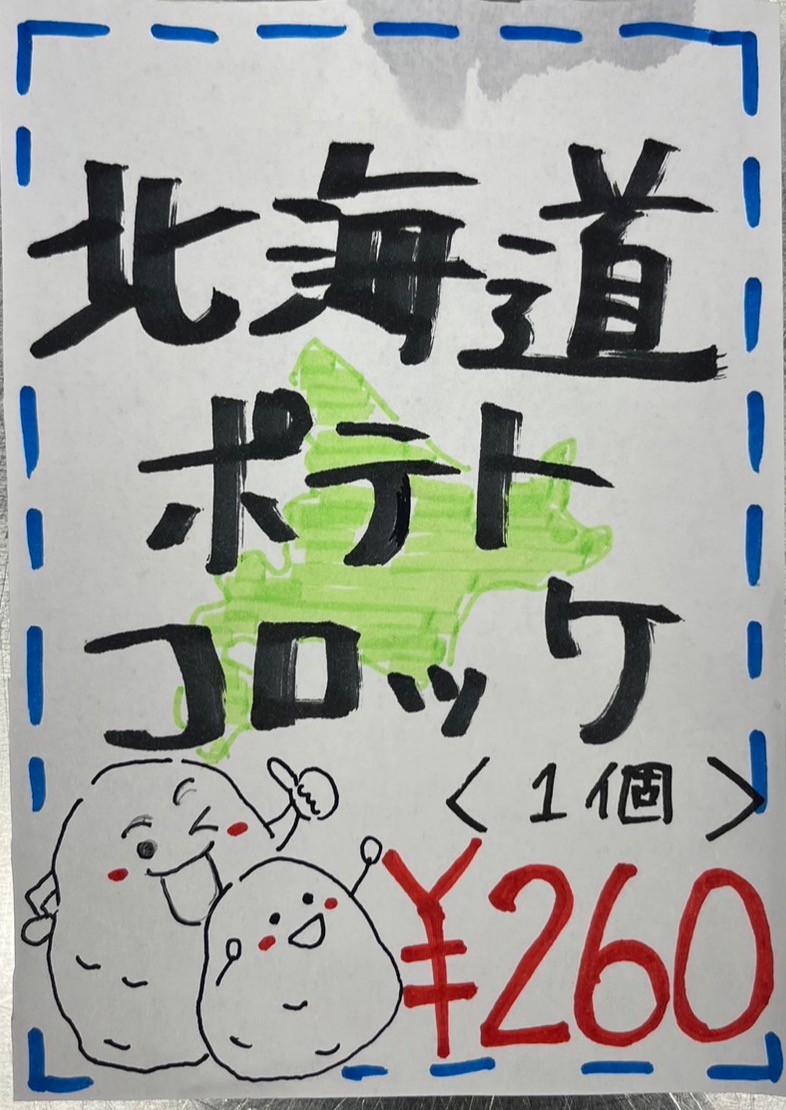 北海道
ポテト
コロッケ
〈1個〉
¥260